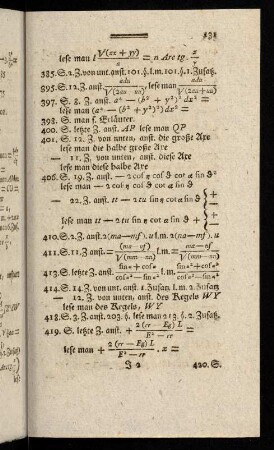 131
lese man l √(xx + yy)/a = n Arc tg. x/y
385. S. 2. Z. von unt. anst. 101. §. l. m. 101. §. 1. Zusatz.
395. S. 12. Z. anst. adu/√(2au-uu), lese man adu/√(2au+uu)
397. S. 8. Z. anst. a⁴ — (b² + y²)² dx² =
lese man (a⁴ — (b² + y²)²) dx² =
398. S. man s. Erläuter.
400. S. letzte Z. anst. AP lese man QP
401. S. 12. Z. von unten, anst. die große Axe
lese man die halbe große Axe
— 11. Z. von unten, anst. diese Axe
lese man diese halbe Axe
406. S. 19. Z. anst. — 2 cos η cos ϑ cot α sin ϑ²
lese man — 2 cos η cos ϑ cot α sin ϑ
— 22. Z. anst. tt — 2 tu sin η cot α sin ϑ { + —
lese man tt — 2 tu sin η cos ϑ + { + —
410. S. 2. Z. anst. 2(ma—nf). u l. m. 2(na—mf). u
411. S. 11. Z. anst. = (ma—nf)/√(mm—nn) l. m. = (ma—nf)/√(mm—nn)
413. S. letzte Z. anst.
414. S. 14. Z. von unt. anst. 1. Zusatz l. m. 2. Zusatz
— 12. Z. von unten, anst. des Kegels WY
lese man des Kegels, WY
418. S. 3. Z. anst. 203. §. lese man 213. §. 2. Zusatz.
419. S. letzte Z. anst. + 2(cr — Eg) L/E² — cr
lese man + 2(cr — Eg) L/E² — cr . x =
J 2 420. S.